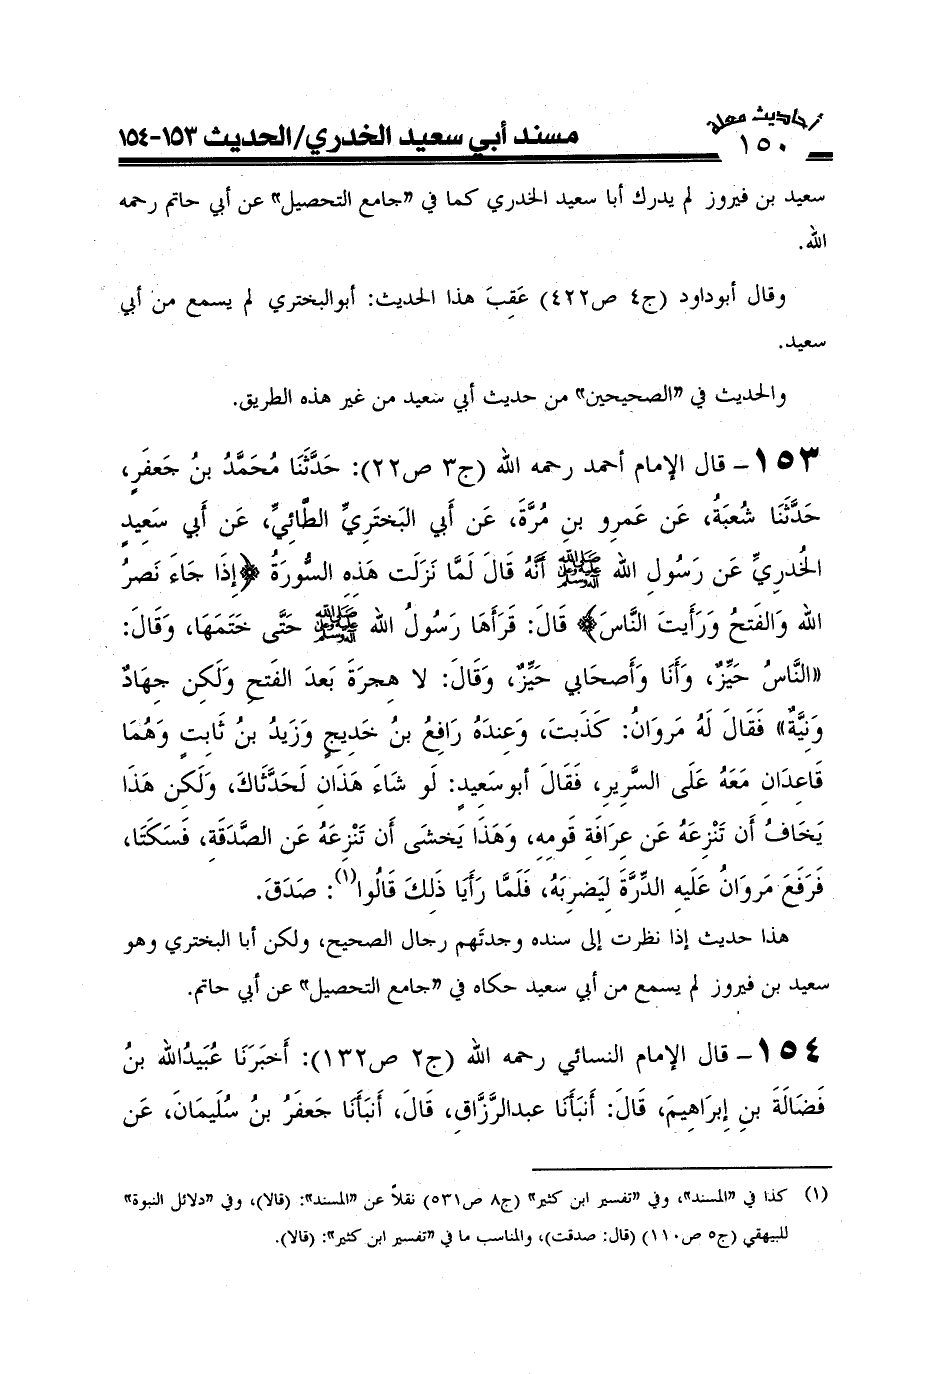 أحاديث معلة
١٥٠
مسند أبي سعيد الخدري/الحديث ١٥٣-١٥٤
سعيد بن فيروز لم يدرك أبا سعيد الخدري كما في «جامع التحصيل» عن أبي حاتم رحمه
الله.
وقال أبوداود (ج٤ ص٤٢٢) عَقِبَ هذا الحديث: أبوالبختري لم يسمع من أبي
سعيد.
والحديث في «الصحيحين» من حديث أبي سعيد من غير هذه الطريق.
١٥٣ - قال الإمام أحمد رحمه الله (ج٣ ص٢٢): حَدَّثَنَا مُحَمَّدُ بنُ جَعفَرٍ،
حَدَّثَنَا شُعبَةُ، عَن عَمرِو بنِ مُرَّةَ، عَن أَبِي البَختَرِيِّ الطَّائِيِّ، عَن أَبِي سَعِيدٍ
الخُدرِيِّ عَن رَسُولِ الله ﷺ أَنَّهُ قَالَ لَمَّا نَزَلَت هَذِهِ السُّورَةُ ﴿إِذَا جَاءَ نَصرُ
الله وَالفَتحُ وَرَأَيتَ النَّاسَ﴾ قَالَ: قَرَأَهَا رَسُولُ الله ﷺ حَتَّى خَتَمَهَا، وَقَالَ:
«النَّاسُ حَيِّزٌ، وَأَنَا وَأَصحَابِي حَيِّزٌ، وَقَالَ: لا هِجرَةَ بَعدَ الفَتحِ وَلَكِن جِهَادٌ
وَنِيَّةٌ» فَقَالَ لَهُ مَروَانُ: كَذَبتَ، وَعِندَهُ رَافِعُ بنُ خَدِيجٍ وَزَيدُ بنُ ثَابِتٍ وَهُمَا
قَاعِدَانِ مَعَهُ عَلَى السَّرِيرِ، فَقَالَ أبوسَعِيدٍ: لَو شَاءَ هَذَانِ لَحَدَّثَاكَ، وَلَكِن هَذَا
يَخَافُ أَن تَنْزِعَهُ عَن عِرَافَةِ قَومِهِ، وَهَذَا يَخشَى أَن تَنْزِعَهُ عَن الصَّدَقَةِ، فَسَكَتَا،
فَرَفَعَ مَروَانُ عَلَيهِ الدِّرَّةَ لِيَضرِبَهُ، فَلَمَّا رَأَيَا ذَلِكَ قَالُوا(١): صَدَقَ.
هذا حديث إذا نظرت إلى سنده وجدتَهم رجال الصحيح، ولكن أبا البختري وهو
سعيد بن فيروز لم يسمع من أبي سعيد حكاه في «جامع التحصيل» عن أبي حاتم.
١٥٤ - قال الإمام النسائي رحمه الله (ج٢ ص١٣٢): أَخبَرَنَا عُبَيدُالله بنُ
فَضَالَةَ بنِ إِبرَاهِيمَ، قَالَ: أَنبَأَنَا عبدالرَّزَّاقِ، قَالَ، أَنبَأَنَا جَعفَرُ بنُ سُلَيمَانَ، عَن
(١) كذا في «المسند»، وفي «تفسير ابن كثير» (ج٨ ص٥٣١) نقلاً عن «المسند»: (قالا)، وفي «دلائل النبوة»
للبيهقي (ج٥ ص١١٠) (قال: صدقت)، والمناسب ما في «تفسير ابن كثير»: (قالا).